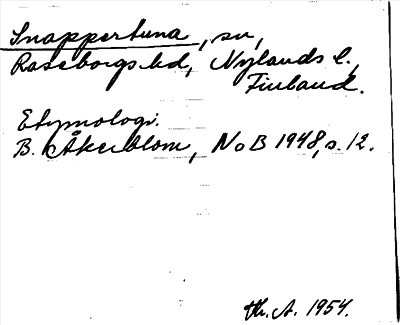 Snappertuna, sn,
Raseborgs hd, Nylands l.,
Finland.
Etymologi.
B. Åkerblom, NoB 1948, s. 12.
Th. A. 1954.